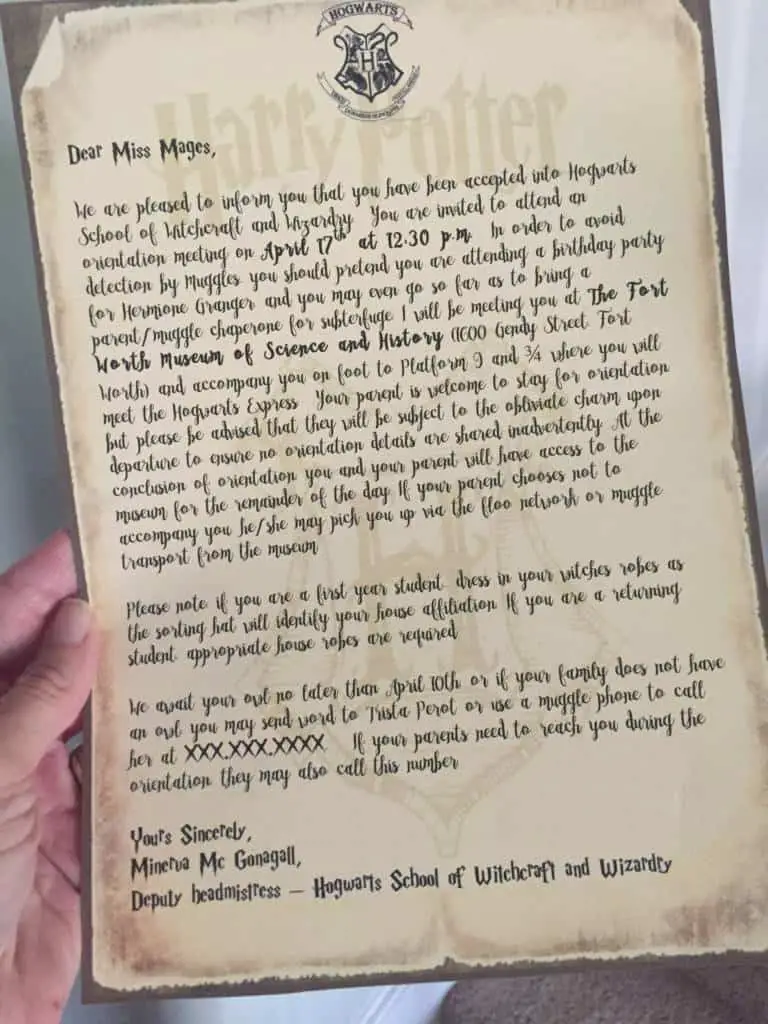 HOGWARTS
H
Harry Potter
Dear Miss Mages,
We are pleased to inform you that you have been accepted into Hogwarts
School of Witchcraft and Wizardry You are invited to attend an
orientation meeting on April 17th at 12.30 p.m. In order to avoid
detection by Muggles you should pretend you are attending a birthday party
for Hermione Granger and you may even go so far as to bring a
parent/muggle chaperone for subterfuge I will be meeting you at The Fort
Worth Museum of Science and History (1600 Gendy Street Fort
Worth) and accompany you on foot to Platform 9 and ¾ where you will
meet the Hogwarts Express Your parent is welcome to stay for orientation
but please be advised that they will be subject to the obliviate charm upon
departure to ensure no orientation details are shared inadvertently At the
conclusion of orientation you and your parent will have access to the
museum for the remainder of the day If your parent chooses not to
accompany you he/she may pick you up via the floo network or muggle
transport from the museum
Please note if you are a first year student dress in your witches robes as
the sorting hat will identify your house affiliation If you are a returning
student appropriate house robes are required
We await your owl no later than April 10th or if your family does not have
an owl you may send word to Trista Perot or use a muggle phone to call
her at XXX.XXX.XXXX If your parents need to reach you during the
orientation they may also call this number
Yours Sincerely,
Minerva Mc Gonagall,
Deputy headmistress – Hogwarts School of Witchcraft and Wizardry